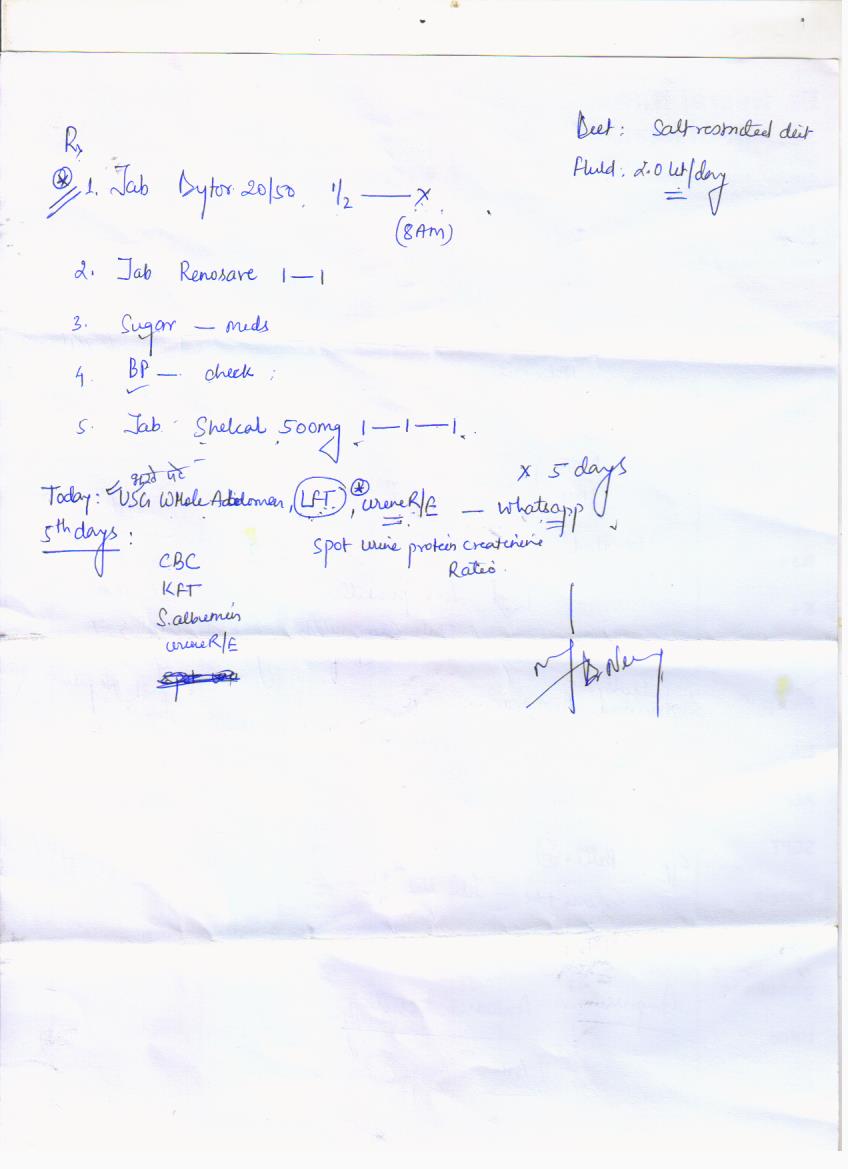 Rx
Diet: Salt restricted diet
Fluid: 2.0 lit/day
1. Tab Dytor 20/50 1/2 — x
(8AM)
2. Tab Renosave 1—1
3. Sugar — meds
4. BP — check :
5. Tab Shelcal 500mg 1—1—1.
x 5 days
Today: USG Whole Abdomen, LFT, urine R/E — whatsapp
spot urine protein creatinine
Ratio.
5th days :
CBC
KFT
S. albumin
urine R/E